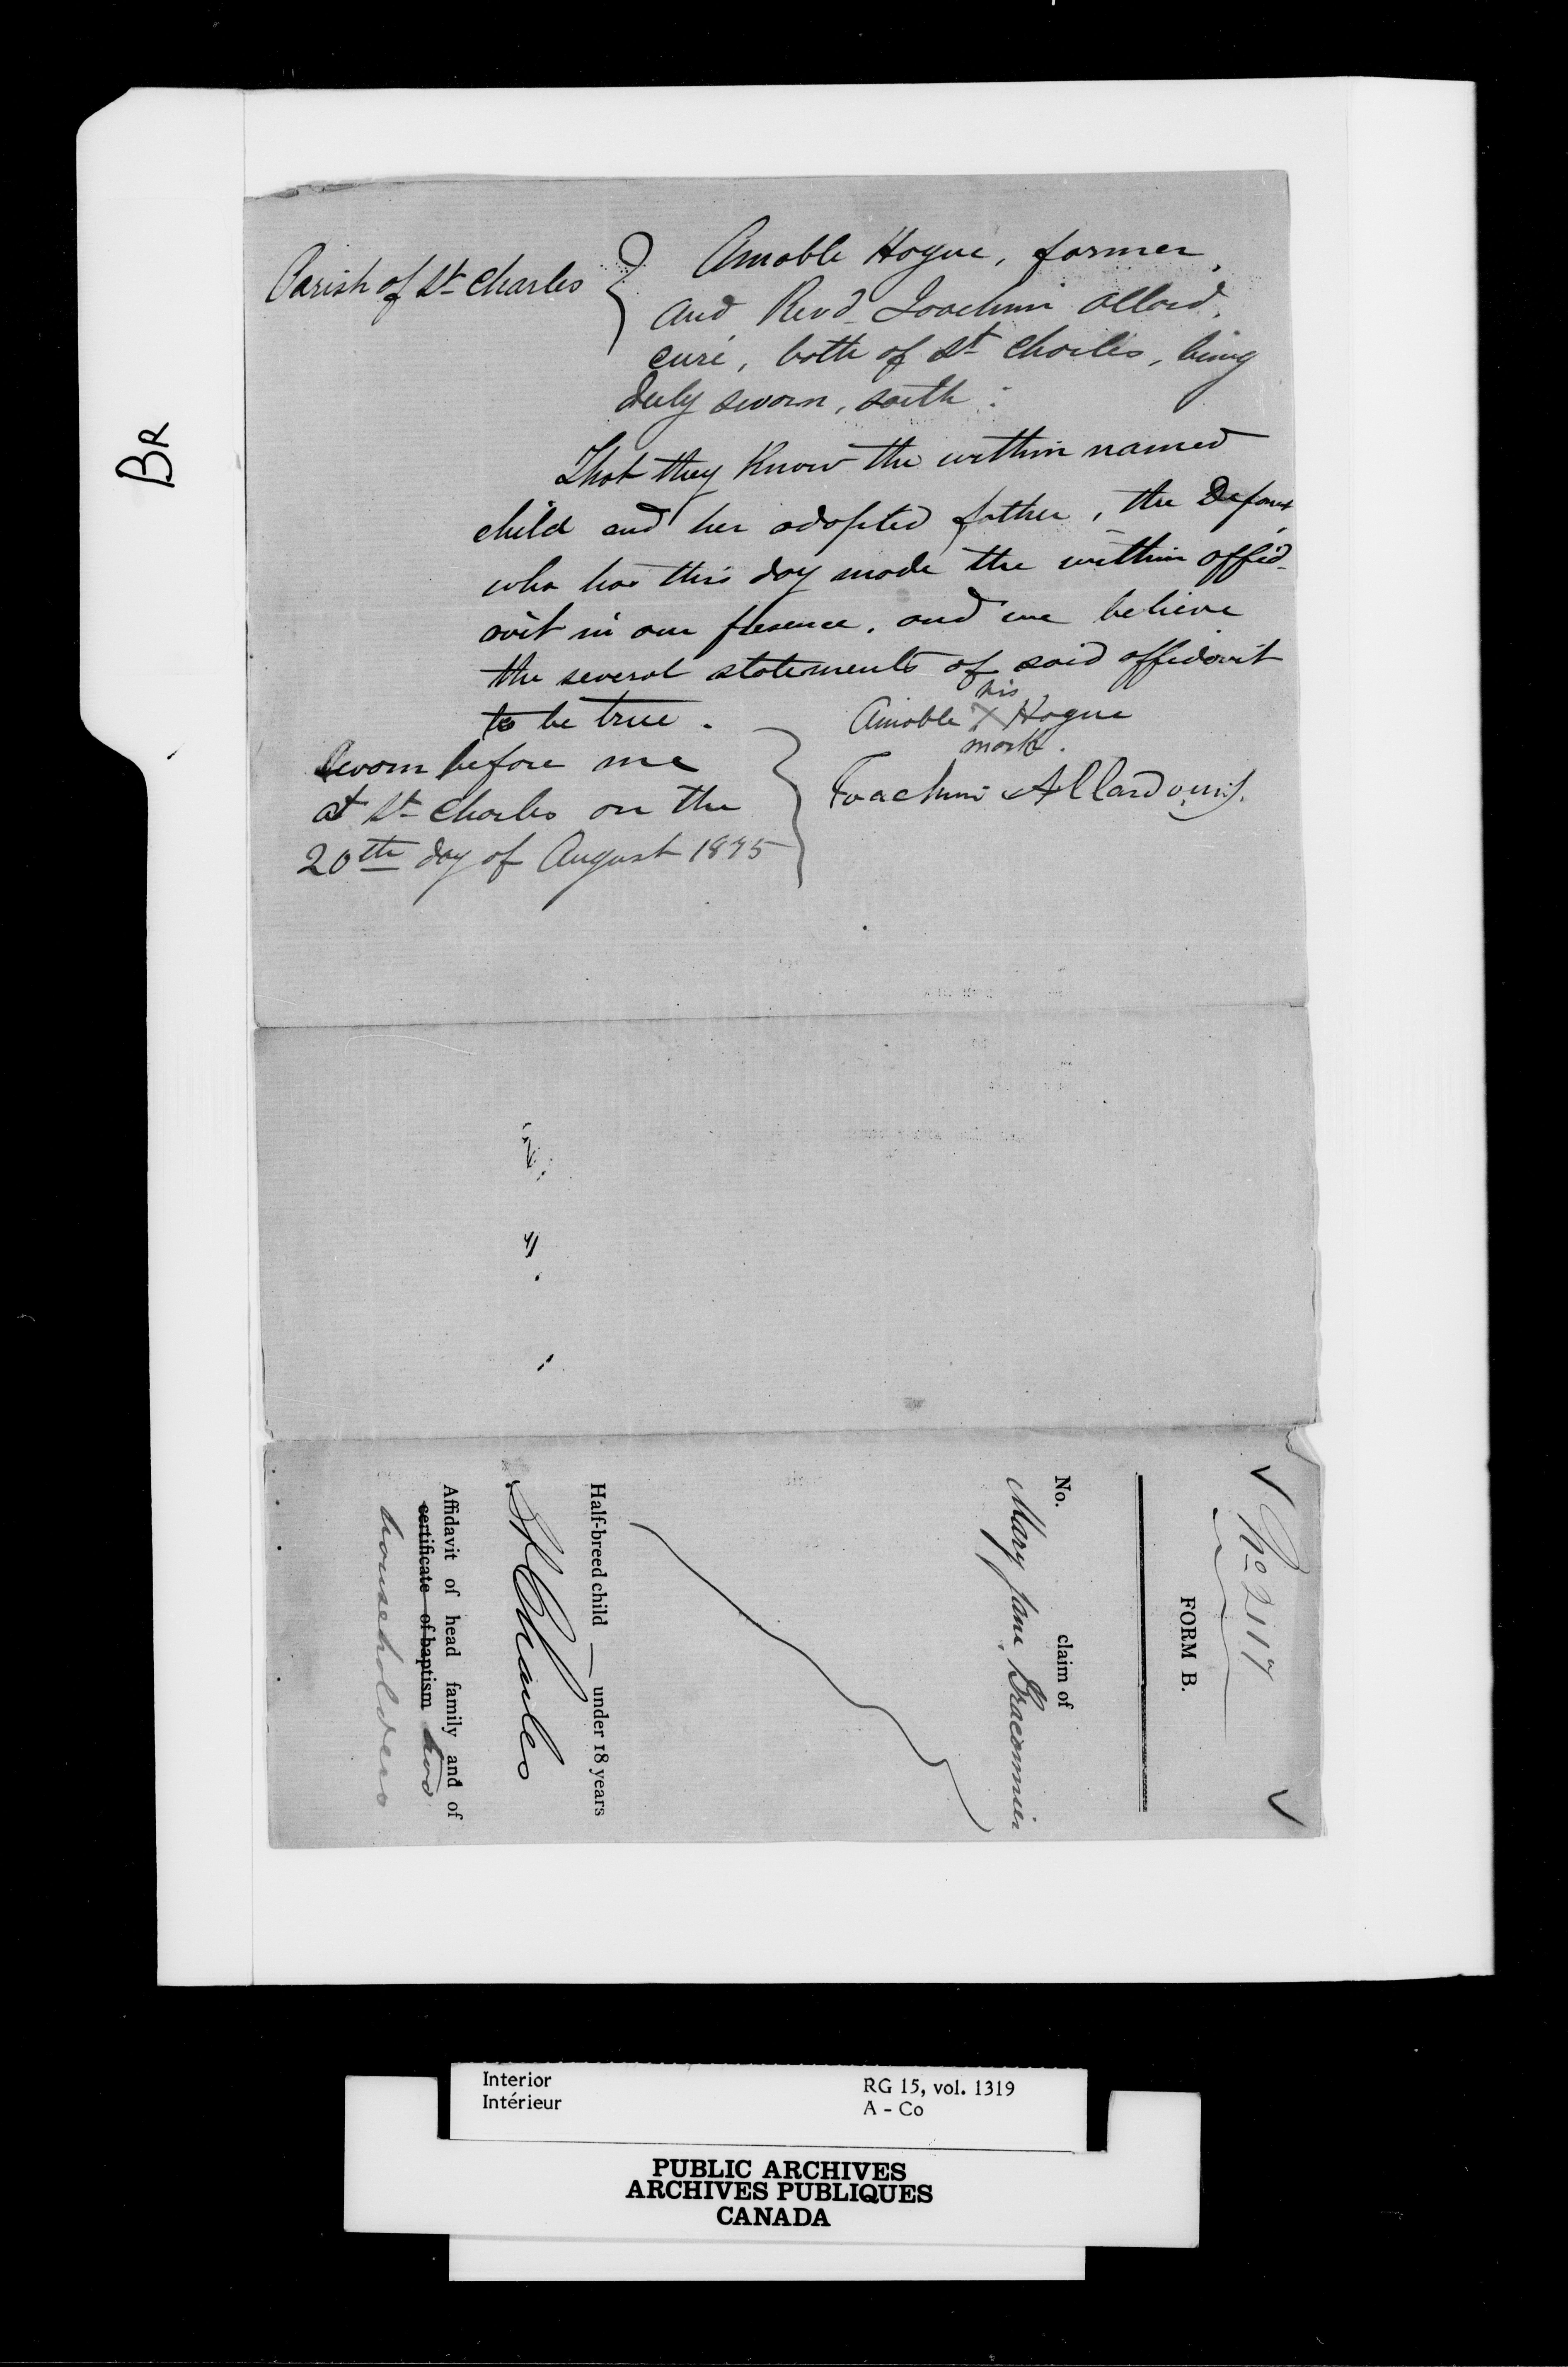 BR
Parish of St Charles
Amable Hogue, farmer,
and Revd Joachim Allard,
curé, both of St Charles, being
duly sworn, saith:
That they know the within named
child and her adopted father, the Depont
who has this day made the within affid-
avit in our presence, and we believe
the several statements of said affidavit
to be true.
Sworn before me
at St Charles on the
20th day of August 1875
his
Amable X Hogue
mark.
Joachim Allard o.m.i.
No 2117
FORM B.
No. claim of
Mary Jane
Half-breed child — under 18 years
St Charles
Affidavit of head family and of
certificate of baptism two
householders
Interior
Intérieur
RG 15, vol. 1319
A - Co
PUBLIC ARCHIVES
ARCHIVES PUBLIQUES
CANADA